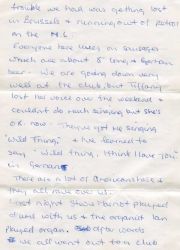 trouble we had was getting lost
in Brussels & running out of petrol
on the M.1.
Everyone here lives on sausages
which are about 8" long, & German
beer. We are going down very
well at the club, but Tiffany
lost her voice over the weekend &
couldn't do much singing but she's
O.K. now - They've got me singing
'Wild Thing' & I've learned to
say - Wild thing, I think I love you
in German
There are a lot of Americans here &
they all rave over us.
Last night Steve Marriot played
drums with us & the organist Ian
played organ. afterwards
we all went out to a club